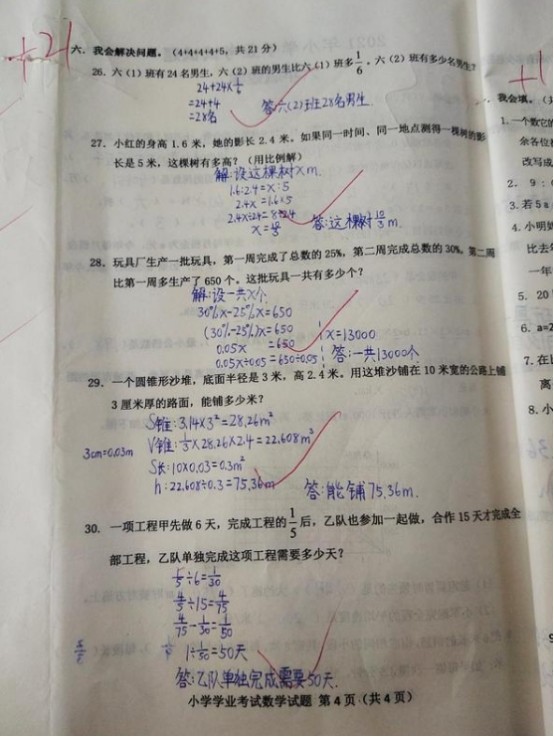 +21
六、我会解决问题。(4+4+4+4+5，共 21 分)
26. 六（1）班有 24 名男生，六（2）班的男生比六（1）班多1/6，六（2）班有多少名男生?
24+24×1/6
=24+4
=28名
答:六(2)班28名男生.
27. 小红的身高 1.6 米，她的影长 2.4 米。如果同一时间、同一地点测得一棵树的影
长是 5 米，这棵树有多高？（用比例解）
解:设这棵树x m.
1.6:2.4=x:5
2.4x=1.6×5
2.4x÷2.4=8÷2.4
x=10/3
答:这棵树10/3m.
28. 玩具厂生产一批玩具，第一周完成了总数的 25%，第二周完成总数的 30%，第二周
比第一周多生产了 650 个。这批玩具一共有多少个？
解:设一共x个
30%x-25%x=650
(30%-25%)x=650
0.05x =650
0.05x÷0.05=650÷0.05
x=13000
答:一共13000个
29. 一个圆锥形沙堆，底面半径是 3 米，高 2.4 米。用这堆沙铺在 10 米宽的公路上铺
3 厘米厚的路面，能铺多少米？
S锥:3.14×3²=28.26m²
3cm=0.03m
V锥:1/3×28.26×2.4=22.608m³
S长:10×0.03=0.3m²
h:22.608÷0.3=75.36m
答:能铺75.36m.
30. 一项工程甲先做 6 天，完成工程的1/5后，乙队也参加一起做，合作 15 天才完成全
部工程，乙队单独完成这项工程需要多少天？
1/5÷6=1/30
4/5÷15=4/75
4/75-1/30=1/50
1÷1/50=50天
答:乙队单独完成需要50天.
小学学业考试数学试题 第 4 页（共 4 页）
+1
我会填。
1. 一个数它的
余各位
改写成
2. 9：
3. 若 5a
4. 小明
比去
一年
5. 20
6. a=2
7. 在
离
8. 小